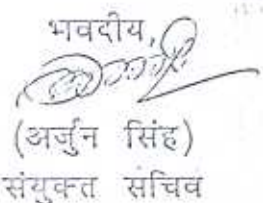 भवदीय,
(अर्जुन सिंह)
संयुक्त सचिव